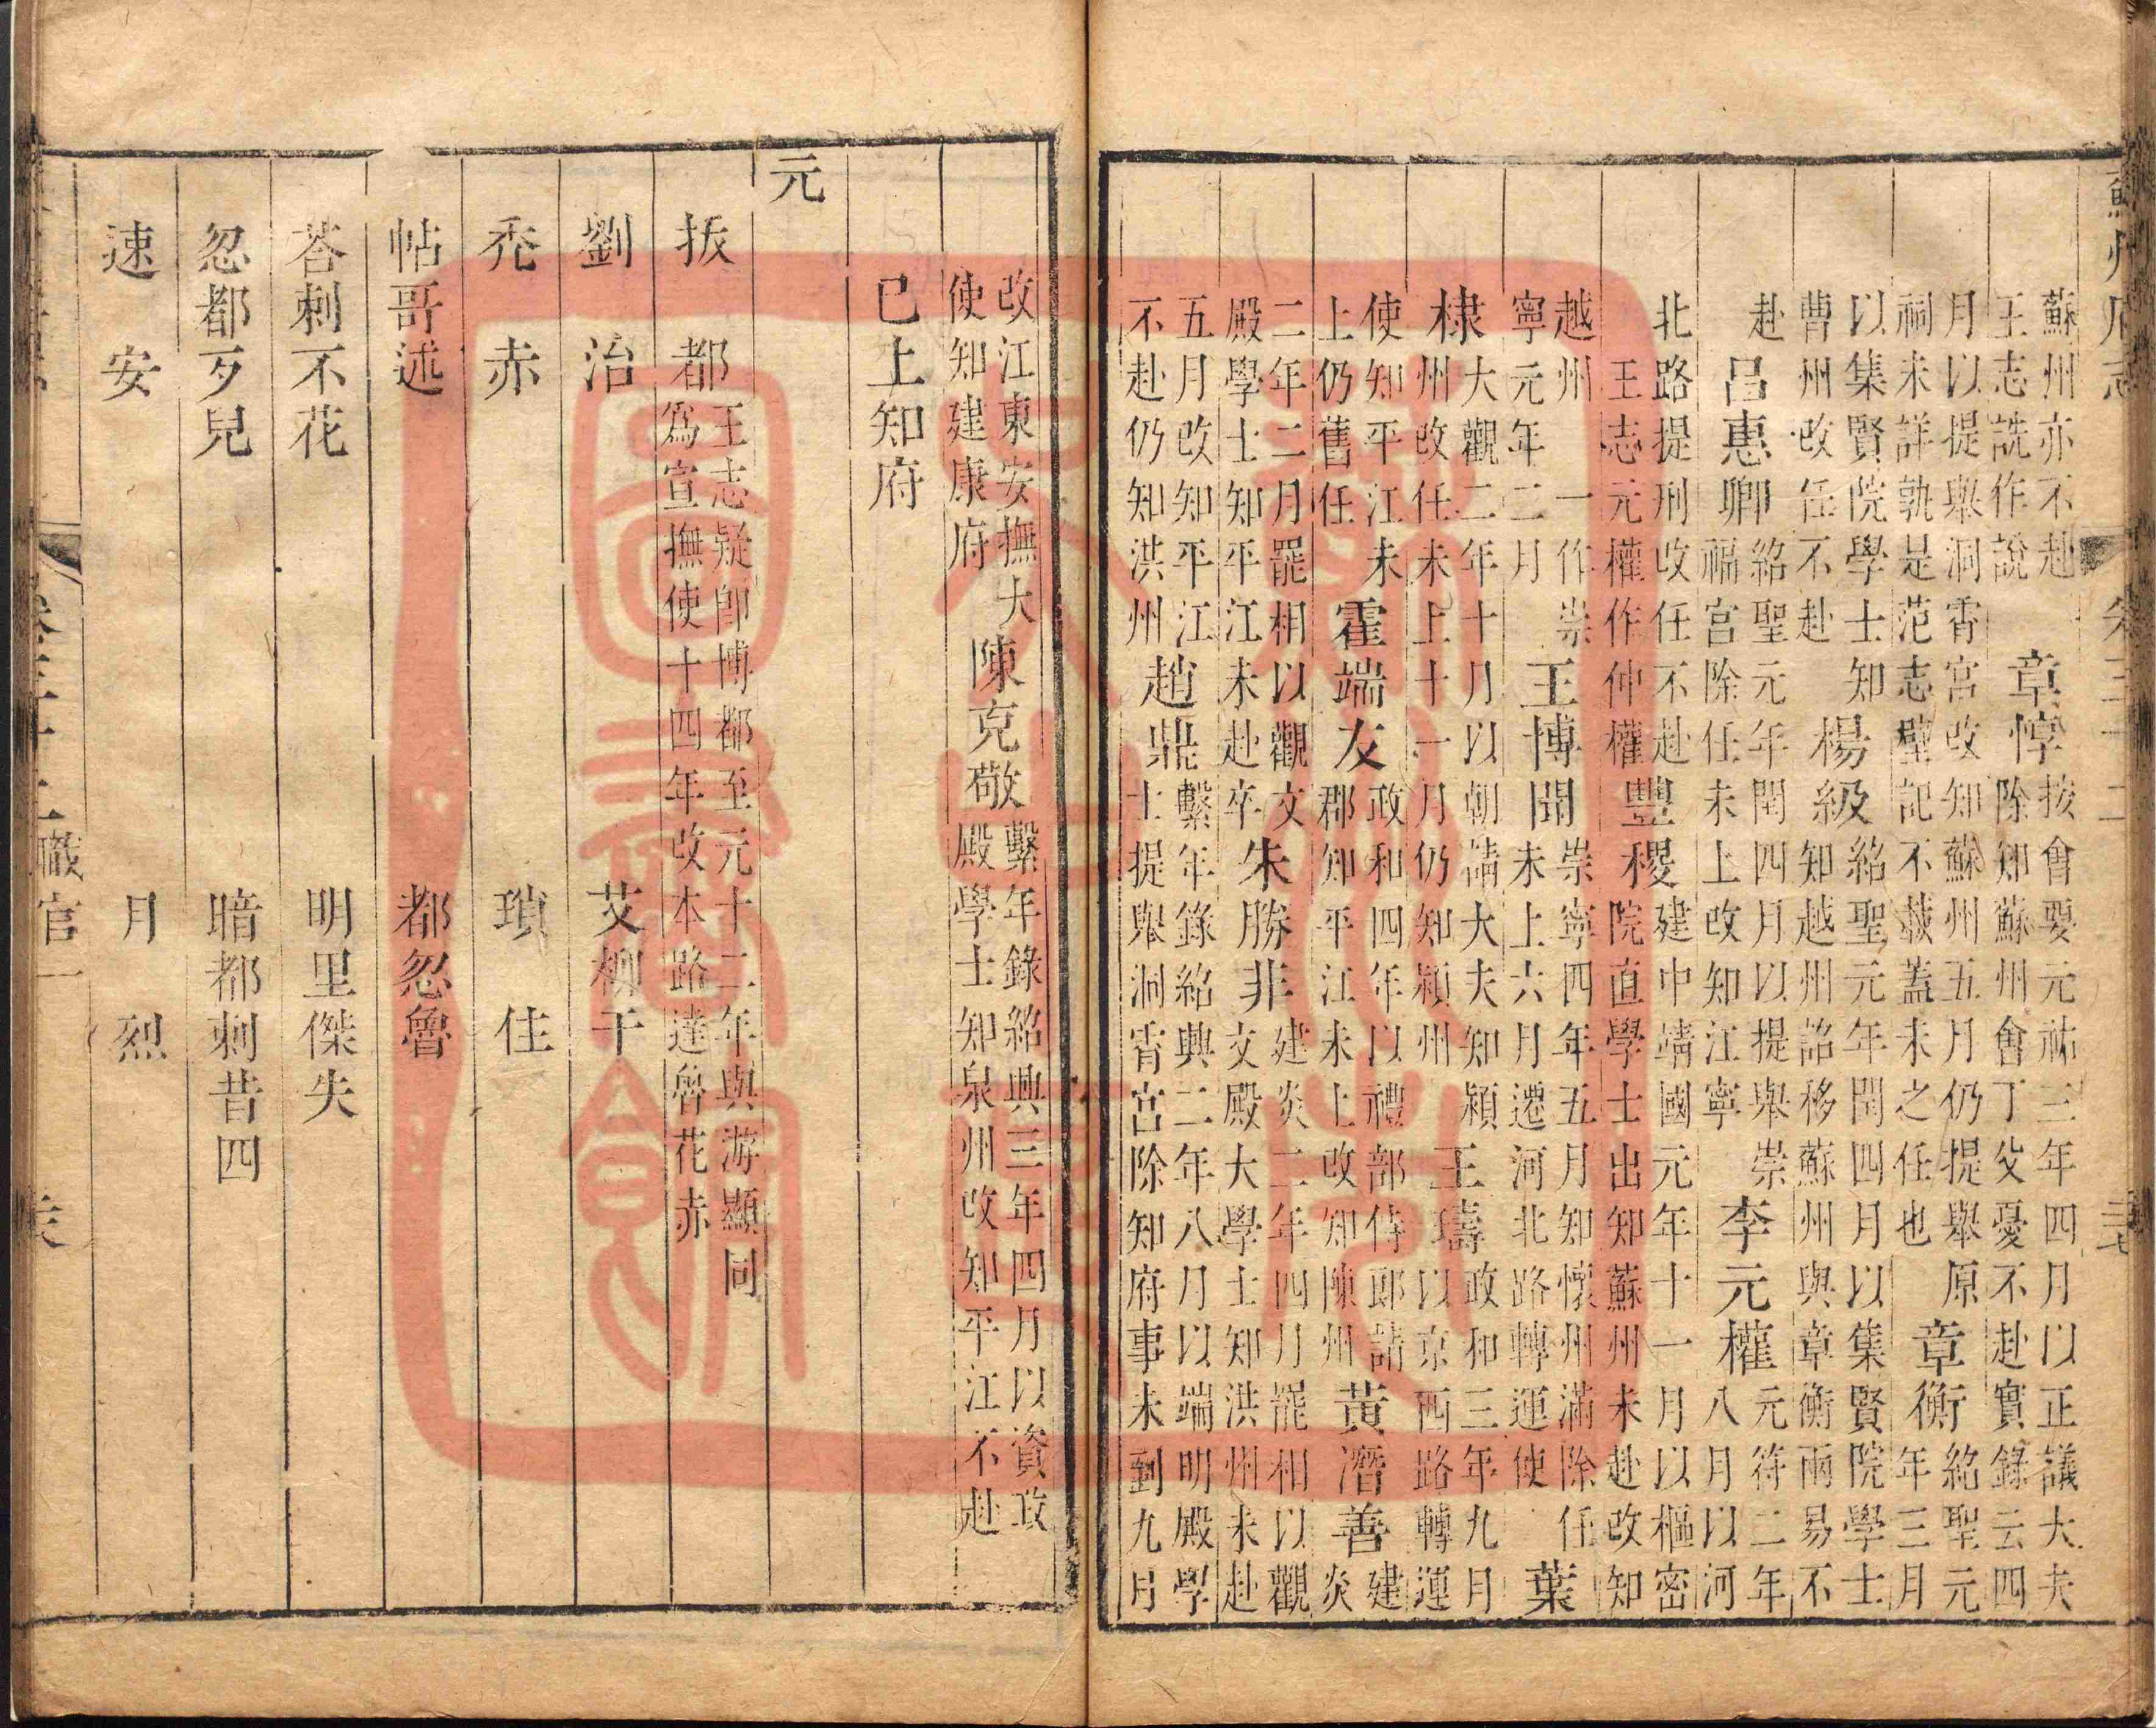 蘇州府志
卷三十二
蘇州亦不赴
王志詵作說
章惇
按會要元祐三年四月以正議大夫
除知蘇州會丁父憂不赴實錄云四
月以提舉洞霄宮改知蘇州五月仍提舉原
祠未詳孰是范志壁記不載蓋未之任也
章衡
紹聖元
年三月
以集賢院學士知
曹州改任不赴
楊級
紹聖元年閏四月以集賢院學士
知越州詔移蘇州與章衡兩易不
赴
呂惠卿
紹聖元年閏四月以提舉崇
福宮除任未上改知江寧
李元權
元符二年
八月以河
北路提刑改任不赴
王志元權作仲權
豐稷
建中靖國元年十一月以樞密
院直學士出知蘇州未赴改知
越州一作崇
寧元年二月
王博聞
崇寧四年五月知懷州滿除任
未上六月遷河北路轉運使
葉
棣
大觀二年十月以朝請大夫知潁
州改任未上十一月仍知潁州
王璹
政和三年九月
以京西路轉運
使知平江未
上仍舊任
霍端友
政和四年以禮部侍郎請
郡知平江未上改知陳州
黃潛善
建
炎
二年二月罷相以觀文
殿學士知平江未赴卒
朱勝非
建炎二年四月罷相以觀
文殿大學士知洪州未赴
五月改知平江
不赴仍知洪州
趙鼎
繫年錄紹興二年八月以端明殿學
士提舉洞霄宮除知府事未到九月
改江東安撫大
使知建康府
陳克敬
繫年錄紹興三年四月以資政
殿學士知泉州改知平江不赴
已上知府
元
拔都
王志疑卽博都至元十二年與游顯同
爲宣撫使十四年改本路達魯花赤
劉治　艾柳干
禿赤　瑣住
帖哥述　都忽魯
荅剌不花　明里傑失
忽都歹兒　暗都剌昔四
速安　月烈
職官一